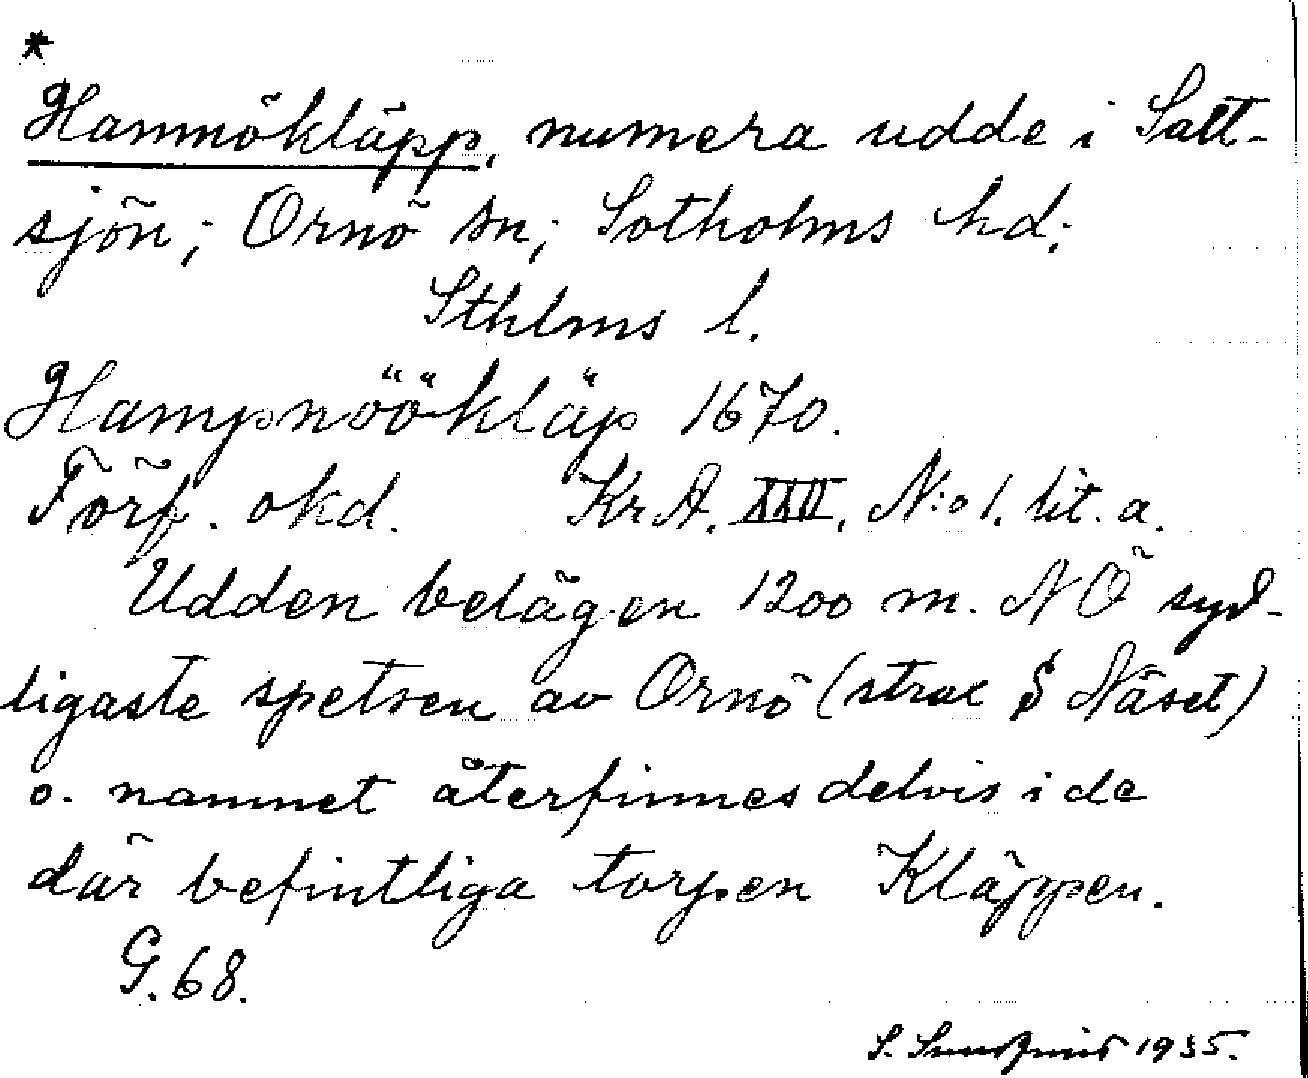 *
Hamnökläpp, numera udde i Salt-
sjön; Ornö sn; Sotholms hd;
Sthlms l.
Hampnöökläp 1670.
Förf. okd. Kr A. XXII, N:o 1. lit. a.
Udden belägen 1200 m. NÖ syd-
ligaste spetsen av Ornö (strax S Näset)
o. namnet återfinnes delvis i de
där befintliga torpen Kläppen.
G. 68.
S. 1935.